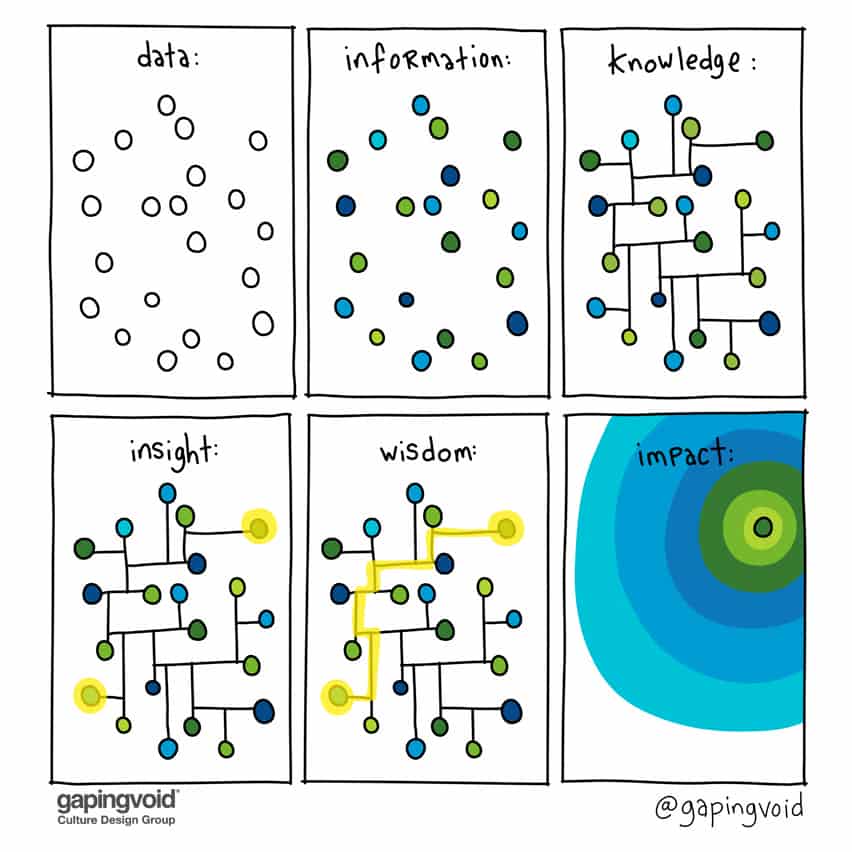 data:
information:
knowledge:
insight:
wisdom:
impact:
gapingvoid®
Culture Design Group
@gapingvoid